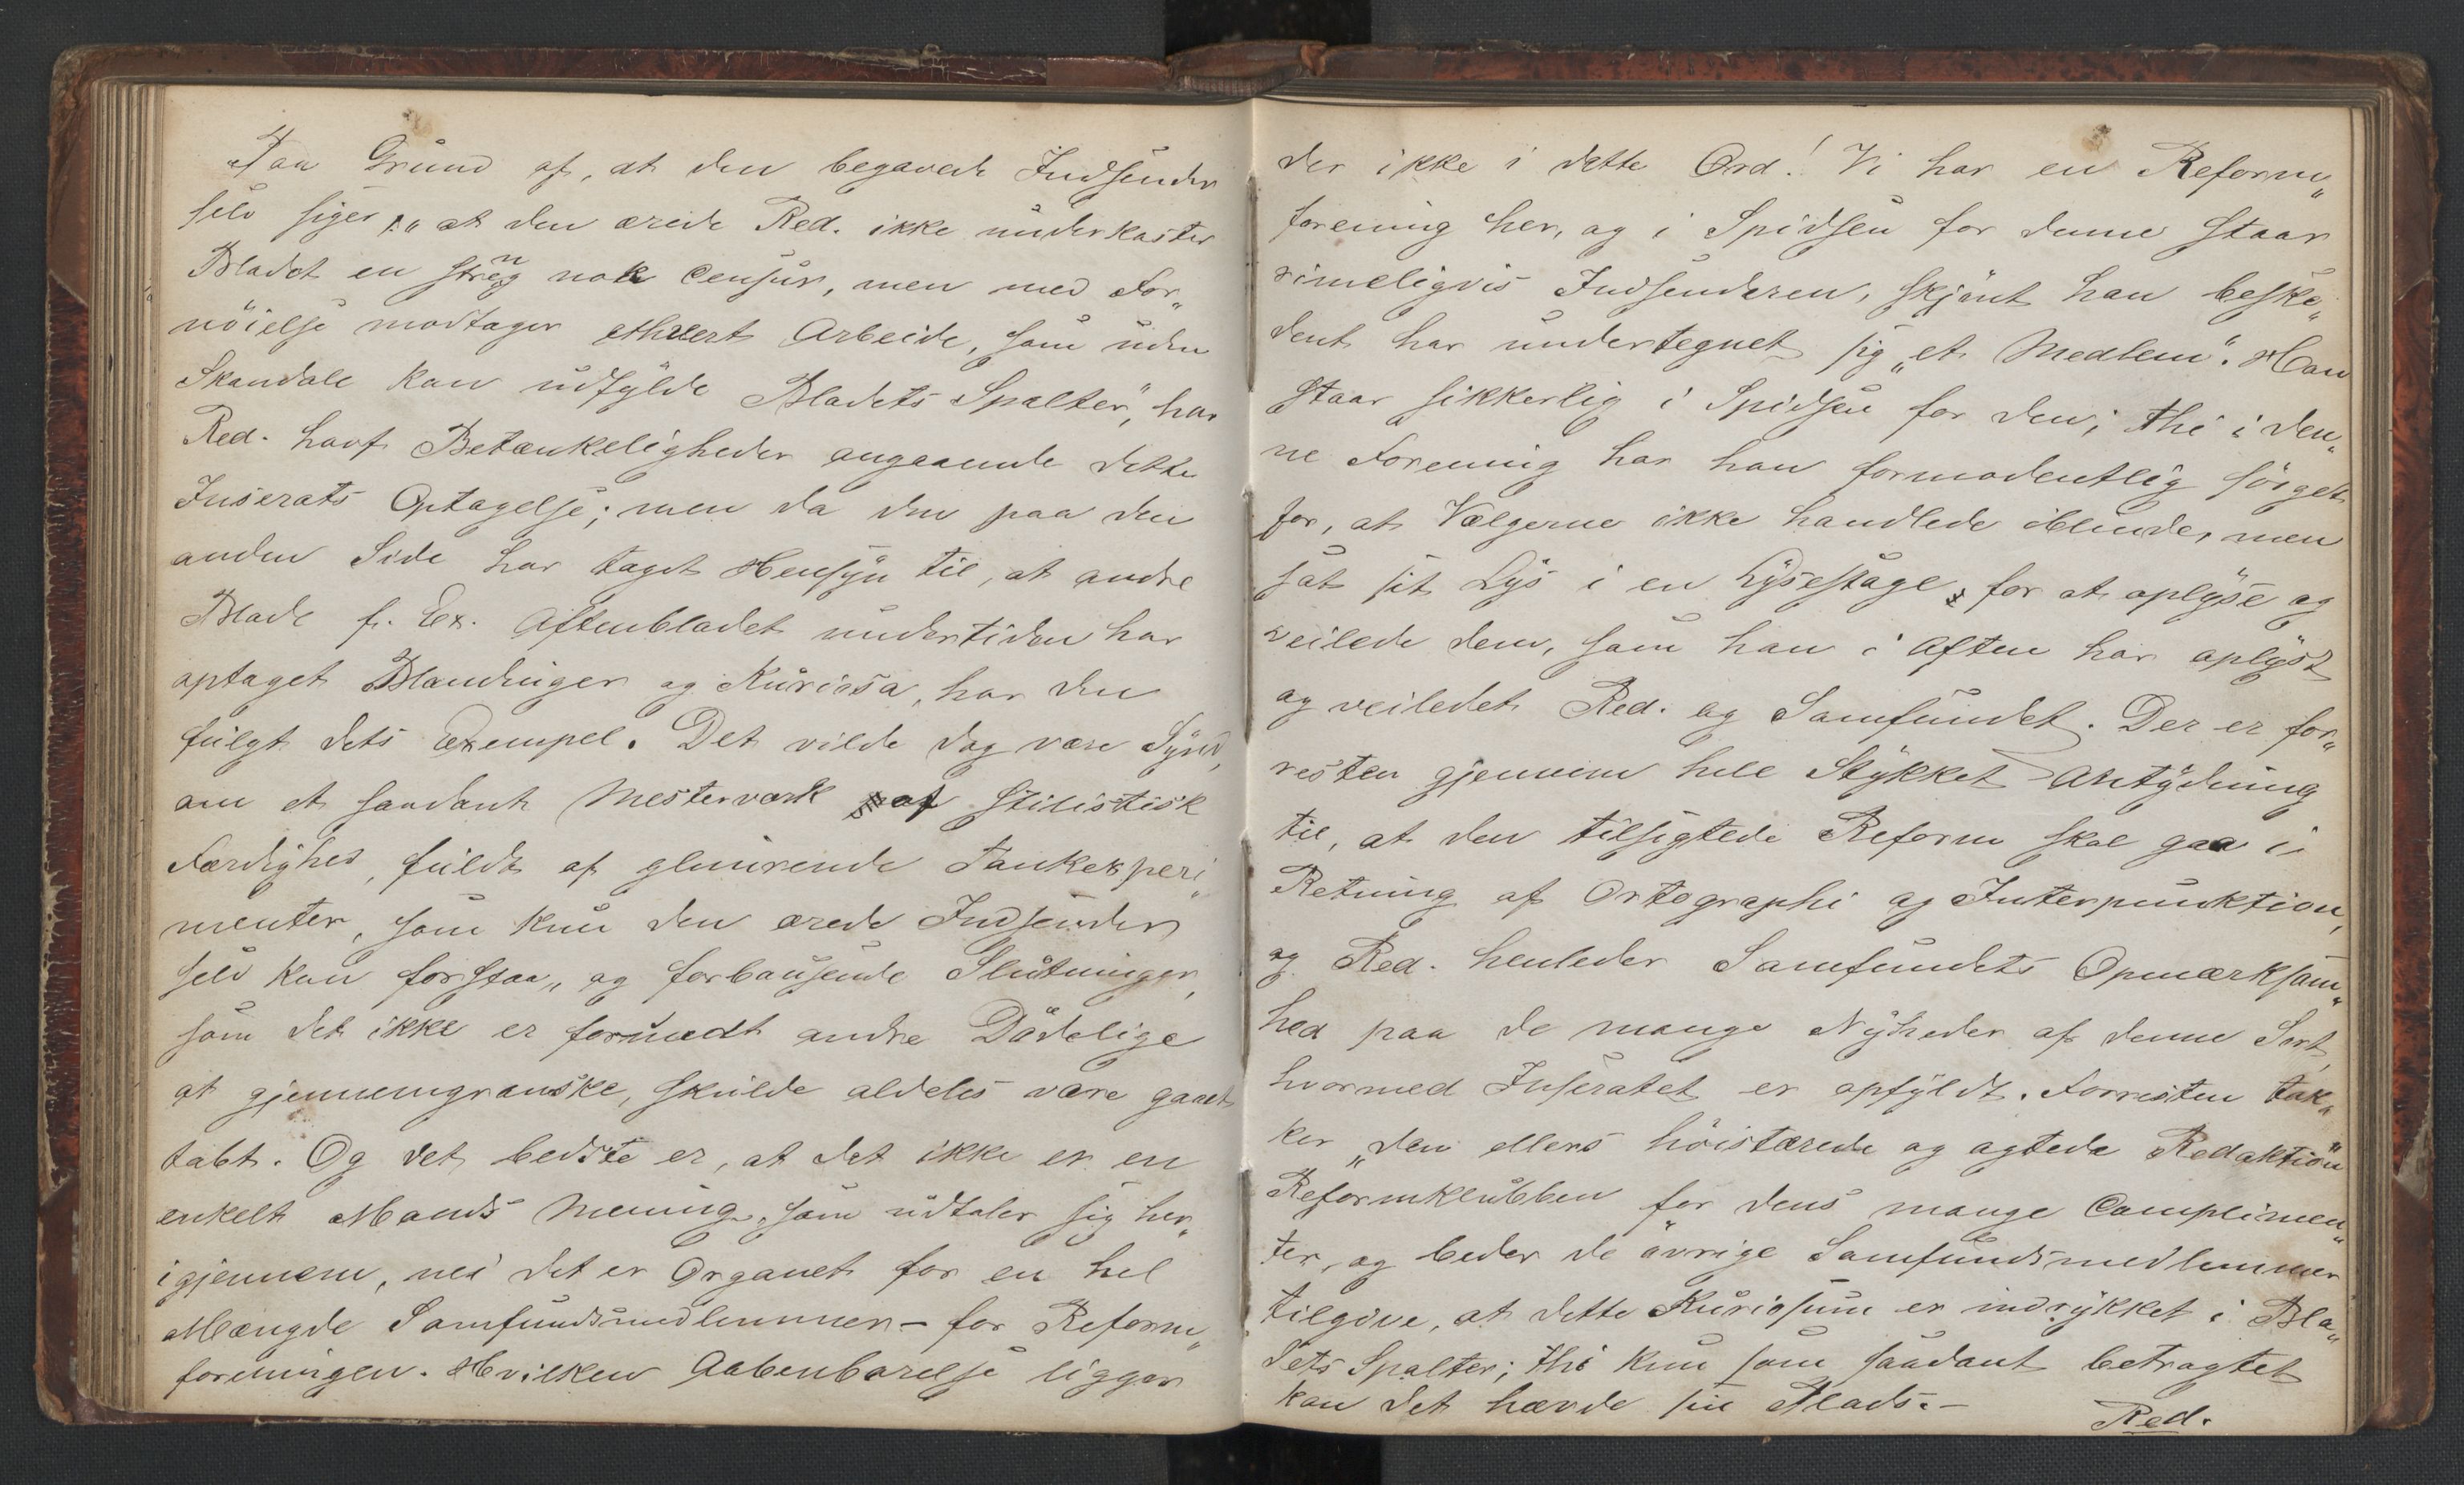 Paa Grund af, at den begavede Indsender
selv siger „at den ærede Red. ikke underkaster
Bladet en streng nok Censur, men med For„
nöielse modtager ethvert Arbeide, som uden
Skandale kan udfylde Bladets Spalter", har
Red. havt Betænkeligheder angaaende dette
Inserats Optagelse; men da den paa den
anden Side har taget Hensyn til, at andre
Blade f. Ex. Aftenbladet undertiden har
optaget Blandinger og Kuriosa, har den
fulgt dets Exempel. Det vilde dog være Synd,
om et saadant Mesterværk af stilistisk
Færdighed, fuldt af glimrende Tankexperi„
menter, som kun den ærede Indsender
selv kan forstaa, og forbausende Slutninger,
som det ikke er formedt andre Dödelige
at gjennemgranske, skulde aldeles være gaaet
tabt. Og det bedste er, at det ikke er en
enkelt Mands Mening, som udtaler sig her„
igjennem, nei det er Organet for en hel
Mængde Samfundsmedlemmer – for Reform„
foreningen. Hvilken Aabenbarelse ligger
der ikke i dette Ord! Vi har en Reform„
forening her, og i Spidsen for denne staar
rimeligvis Indsenderen, skjönt han beske„
dent har undertegnet sig „et Medlem". Han
staar sikkerlig i Spidsen for den; thi i den„
ne Forening har han formodentlig sörget
for, at Vælgerne ikke handlede iblinde, men
sat sit Lys i en Lysestage for at oplyse og
veilede dem, som han i Aften har oplyst
og veiledet Red. og Samfundet. Der er for„
resten gjennem hele Stykket Antydning
til, at den tilsigtede Reform skal gaa i
Retning af Ortographi og Interpunktion,
og Red. henleder Samfundets Opmærksom„
hed paa de mange Nyheder af denne Sort,
hvormed Inseratet er opfyldt. Forresten tak„
ker „den ellers höistærede og agtede Redaktion"
Reformklubben for dens mange Complimen„
ter, og beder de övrige Samfundsmedlemmer
tilgive, at dette Kuriosum er indrykket i Bla„
dets Spalter; thi kun som saadant betragtet
kan det hævde sin Plads. –
Red.